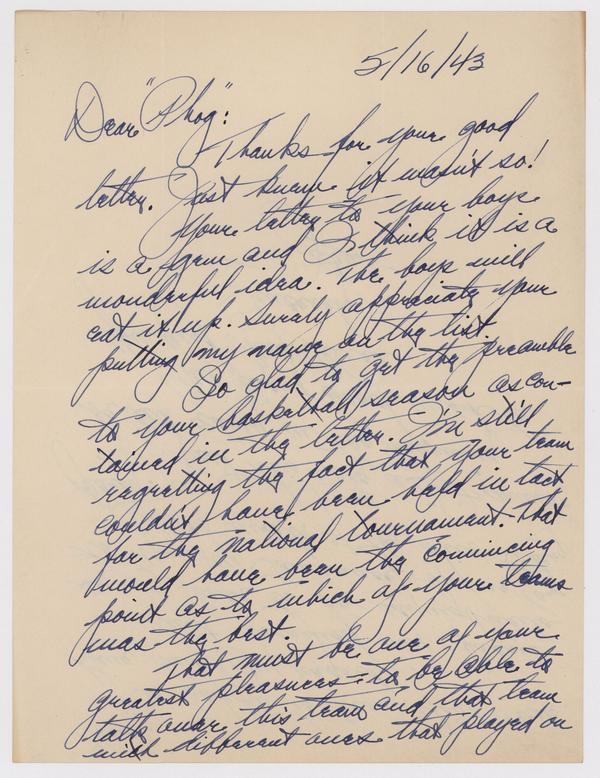 5/16/43
Dear "Phog":
Thanks for your good
letter. Just knew it wasn't so!
Your letter to your boys
is a gem and I think it is a
wonderful idea. The boys will
eat it up. Surely appreciate your
putting my name on the list.
So glad to get the preamble
to your basketball season as con-
tained in the letter. I'm still
regretting the fact that your team
couldn't have been held in tact
for the national tournament. That
would have been the convincing
point as to which of your teams
was the best.
That must be one of your
greatest pleasures - to be able to
talk over this team and that team
with different ones that played on